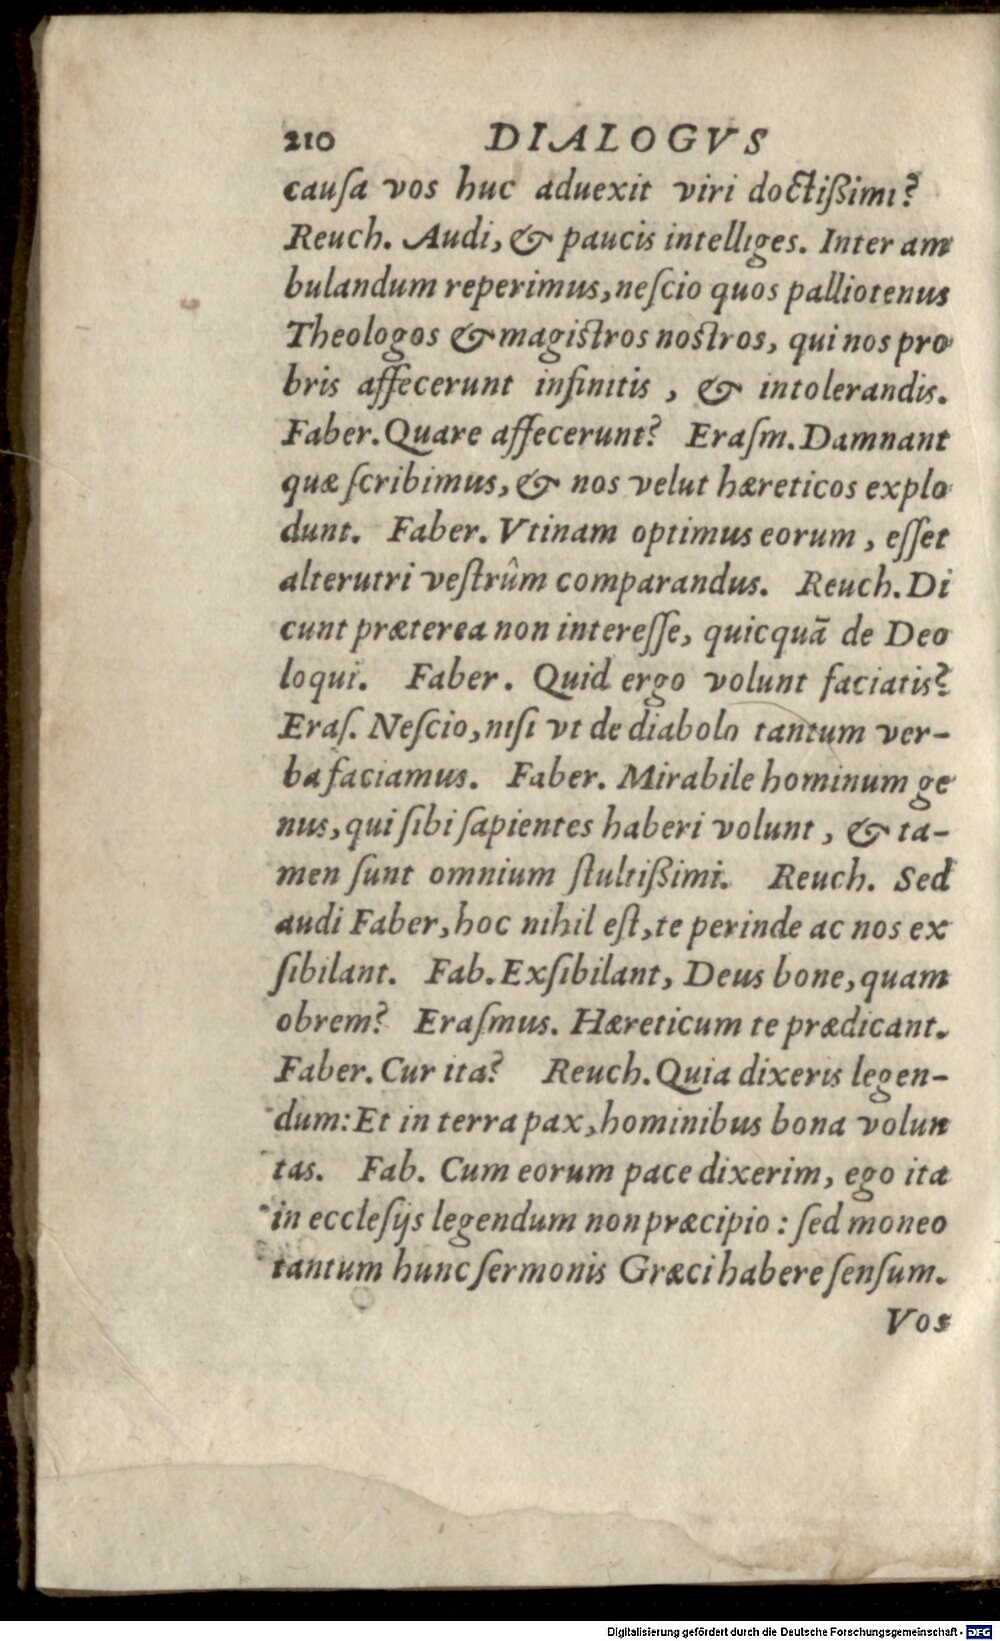 210 DIALOGVS
cauſa vos huc aduexit viri doctißimi?
Reuch. Audi, & paucis intelliges. Inter am
bulandum reperimus, neſcio quos palliotenus
Theologos & magiſtros noſtros, qui nos pro
bris affecerunt infinitis, & intolerandis.
Faber. Quare affecerunt? Eraſm. Damnant
quæ ſcribimus, & nos velut hæreticos explo
dunt. Faber. Vtinam optimus eorum, eſſet
alterutri veſtrûm comparandus. Reuch. Di
cunt præterea non intereſſe, quicquã de Deo
loqui. Faber. Quid ergo volunt faciatis?
Eraſ. Neſcio, niſi vt de diabolo tantum ver-
ba faciamus. Faber. Mirabile hominum ge
nus, qui ſibi ſapientes haberi volunt, & ta-
men ſunt omnium ſtultißimi. Reuch. Sed
audi Faber, hoc nihil eſt, te perinde ac nos ex
ſibilant. Fab. Exſibilant, Deus bone, quam
obrem? Eraſmus. Hæreticum te prædicant.
Faber. Cur ita? Reuch. Quia dixeris legen-
dum: Et in terra pax, hominibus bona volun
tas. Fab. Cum eorum pace dixerim, ego ita
in eccleſijs legendum non præcipio: ſed moneo
tantum hunc ſermonis Græci habere ſenſum.
Vos
Digitalisierung gefördert durch die Deutsche Forschungsgemeinschaft - DFG